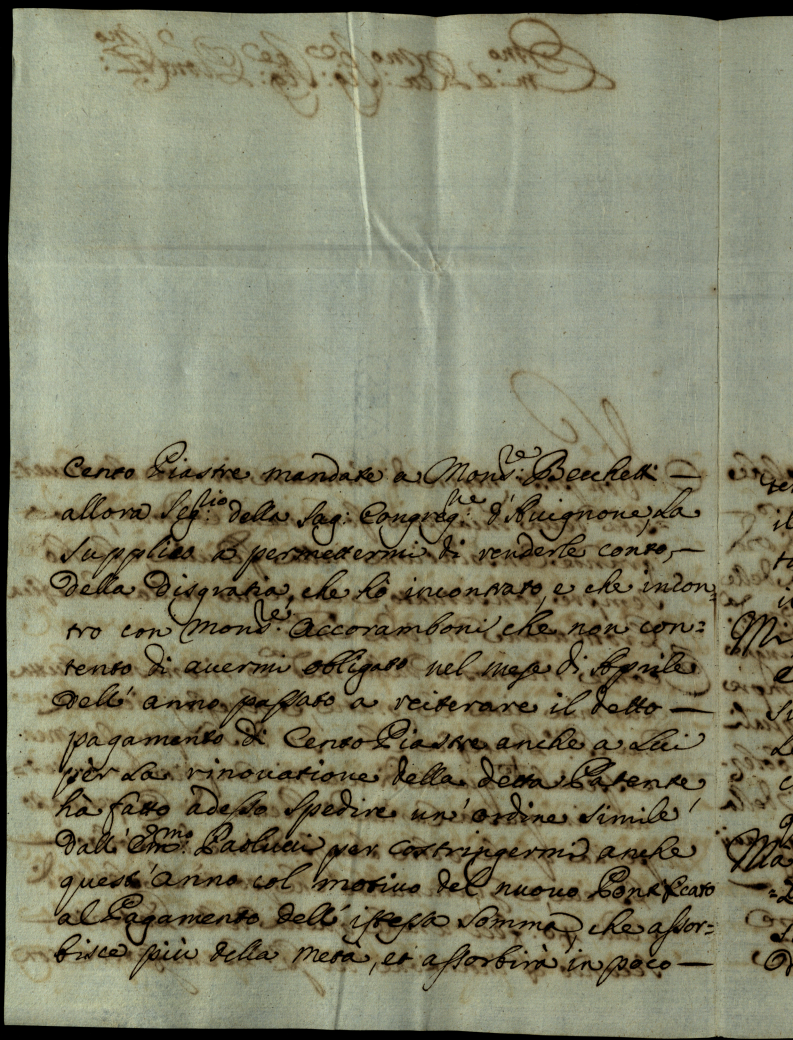 Cento Piastre mandate a Mons:re Becchetti —
allora Seg:rio della Sag: Congreg:ne d'Auignone, La
supplico à permettermi di renderle conto, —
della disgratia, che hò incontrato, e che incon=
tro con Mons:re Accoramboni che non con=
tento di auermi obligato nel mese di Aprile
dell'anno passato a reiterare il detto —
pagamento di Cento Piastre anche a Lui
per La rinouatione della detta Patente,
hà fatto adesso spedire un'ordine simile
dall'Em:mo Paolucci per costringermi anche
quest'anno col motivo del nuovo Pontificato
al Pagamento dell'istessa somma, che assor=
bisce più della metà, et assorbirà in poco —